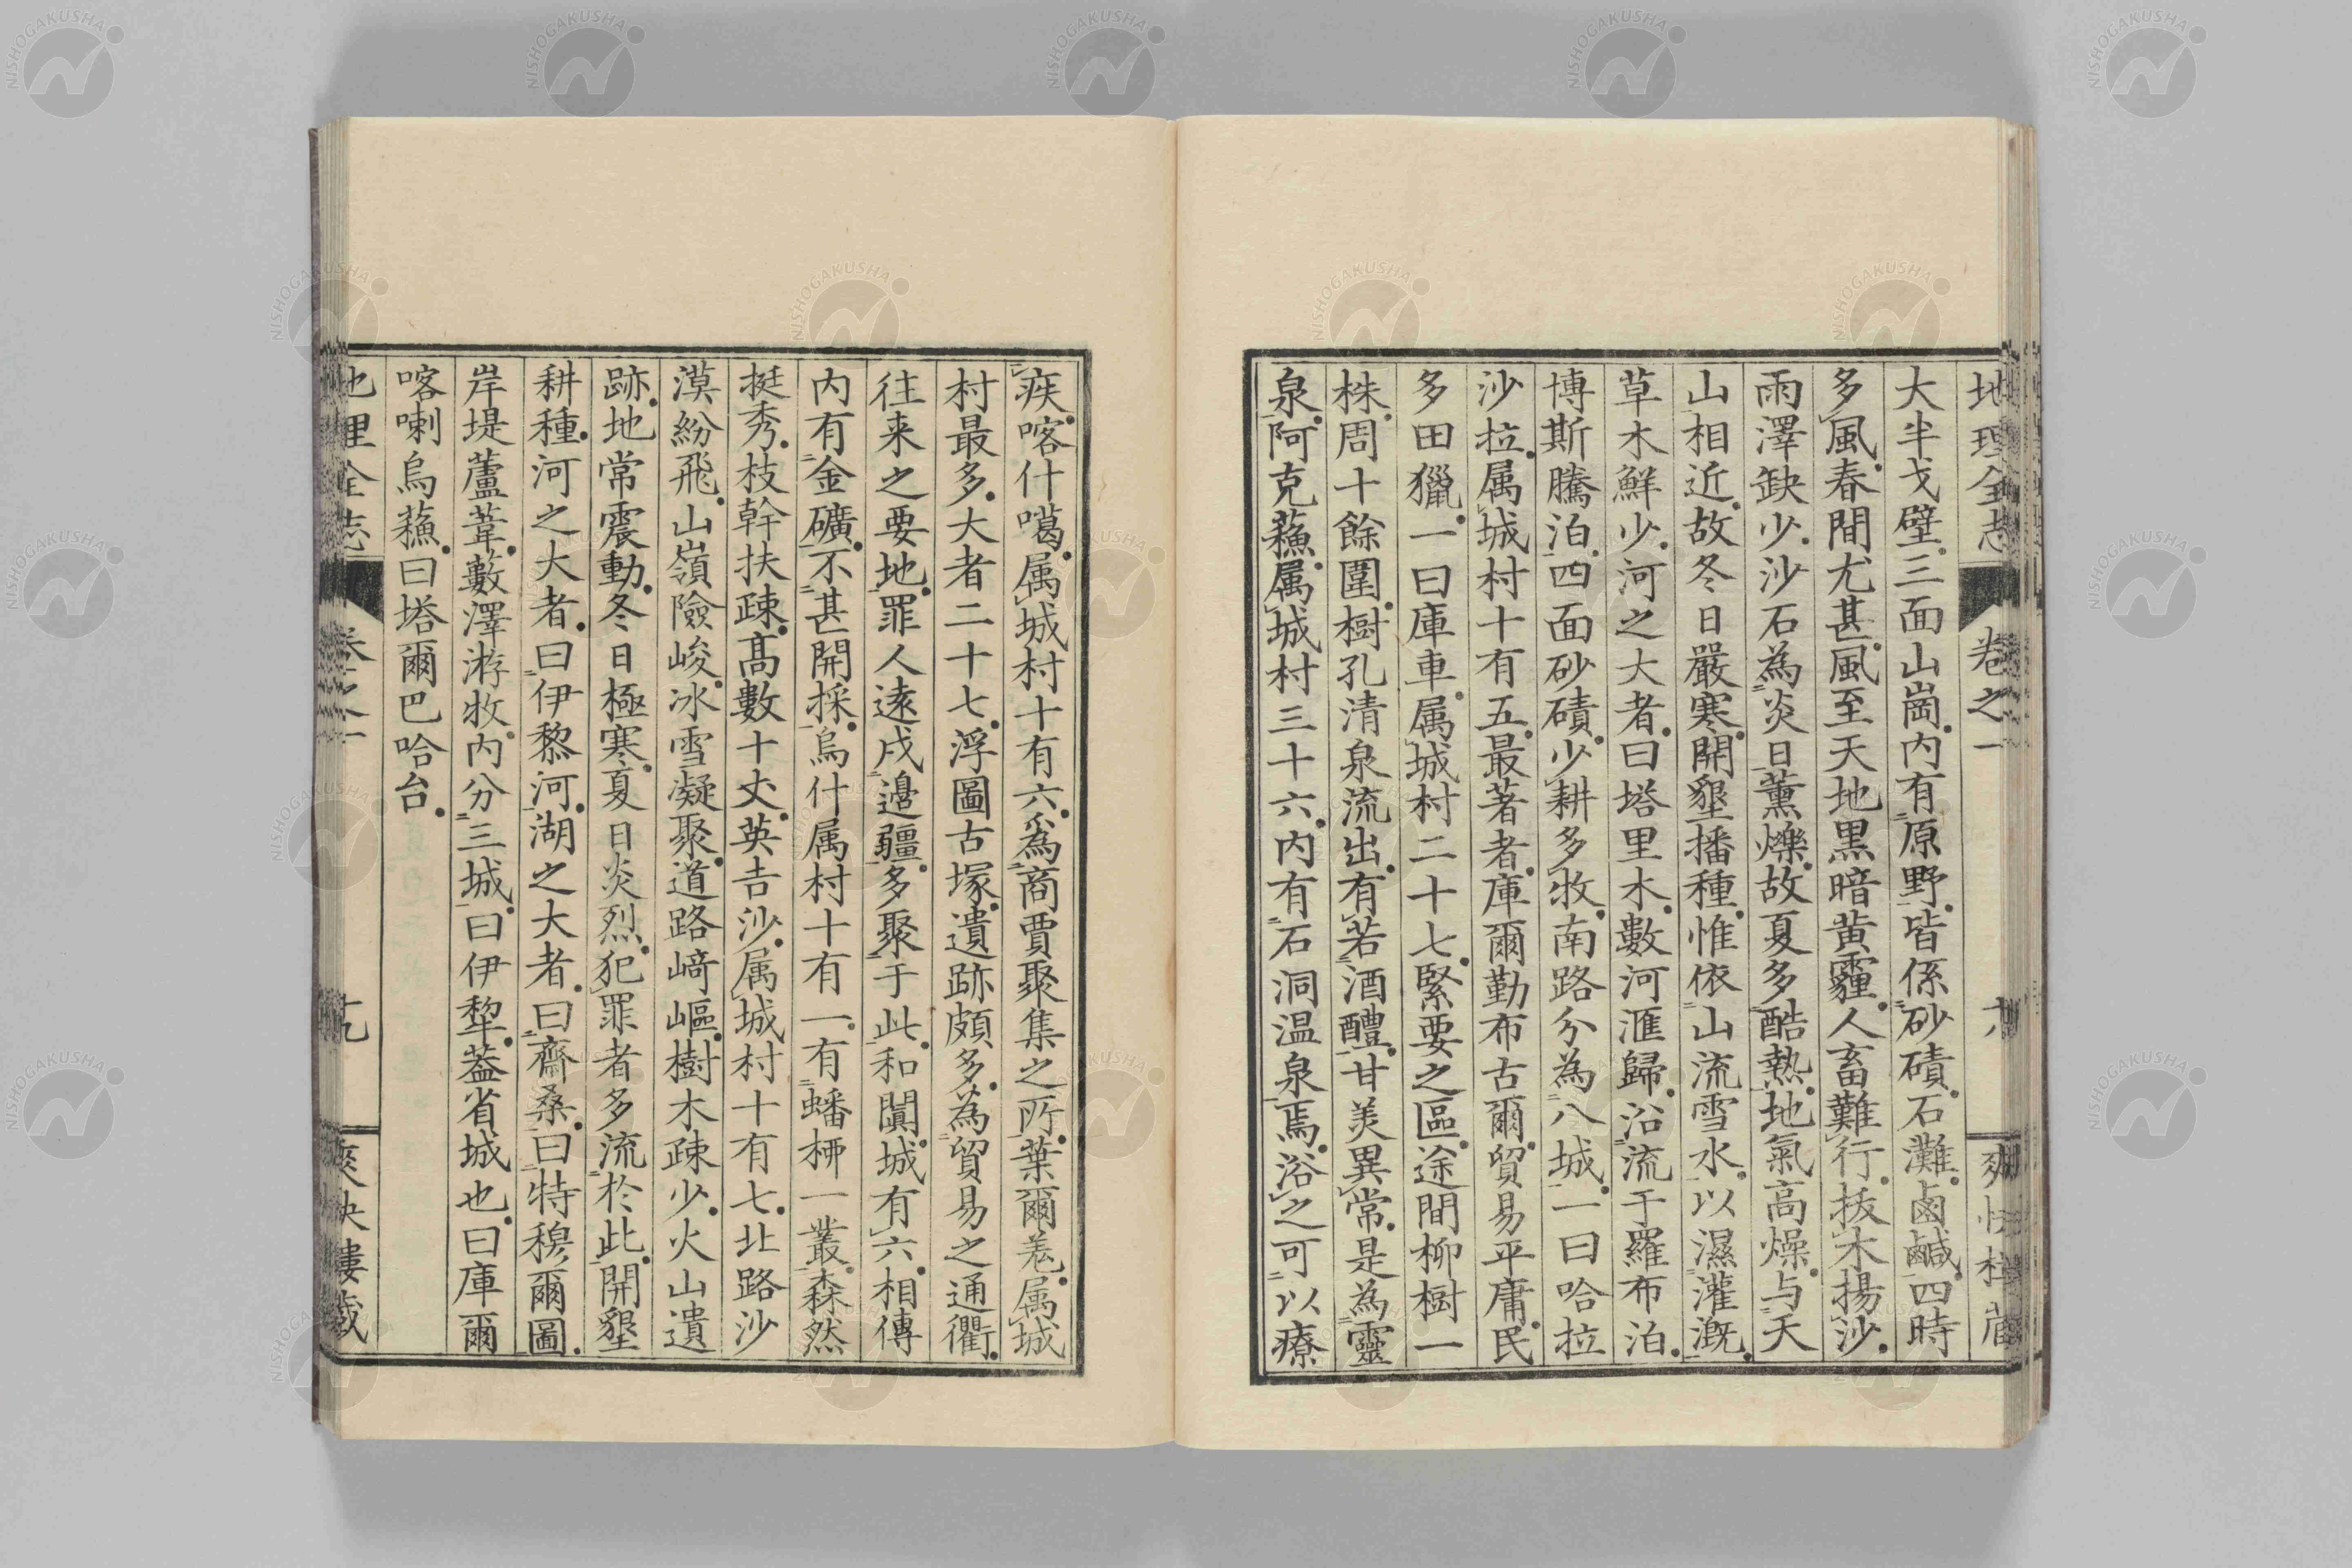 地理全志 卷之一
大半戈壁。三面山崗。内有原野。皆係砂磧。石灘。鹵鹹。四時
多風。春間尤甚。風至天地黒暗黄霾。人畜難行。拔木揚沙。
雨澤缺少。沙石為炎日薫爍。故夏多酷熱。地氣高燥。与天
山相近。故冬日嚴寒。開墾播種。惟依山流雪水。以濕灌溉。
草木鮮少。河之大者。曰塔里木。數河滙歸。沿流于羅布泊。
博斯騰泊。四面砂磧。少耕多牧。南路分為八城。一曰哈拉
沙拉。属城村十有五。最著者。庫爾勤布古爾。貿易平庸。民
多田獵。一曰庫車。属城村二十七。緊要之區。途間柳樹一
株。周十餘圍。樹孔清泉流出。有若酒醴。甘美異常。是為靈
泉。阿克蘓。属城村三十六。内有石洞温泉焉。浴之可以療
疾。喀什噶。属城村十有六。為商賈聚集之所。葉爾羌。属城
村最多。大者二十七。浮圖古塚。遺跡頗多。為貿易之通衢。
往来之要地。罪人遠戍邊疆。多聚于此。和闐城。有六。相傳
内有金礦。不甚開採。烏什属村十有一。有蟠栁一叢。森然
挺秀。枝幹扶疎。高數十丈。英吉沙。属城村十有七。北路沙
漠紛飛。山嶺險峻。冰雪凝聚。道路崎嶇。樹木疎少。火山遺
跡。地常震動。冬日極寒。夏日炎烈。犯罪者多流於此。開墾
耕種。河之大者。曰伊黎河。湖之大者。曰齋桑。曰特穆爾圖。
岸堤蘆葦。藪澤游牧。内分三城。曰伊犂。葢省城也。曰庫爾
喀喇烏蘓。曰塔爾巴哈台。
地理全志 卷之一 十九